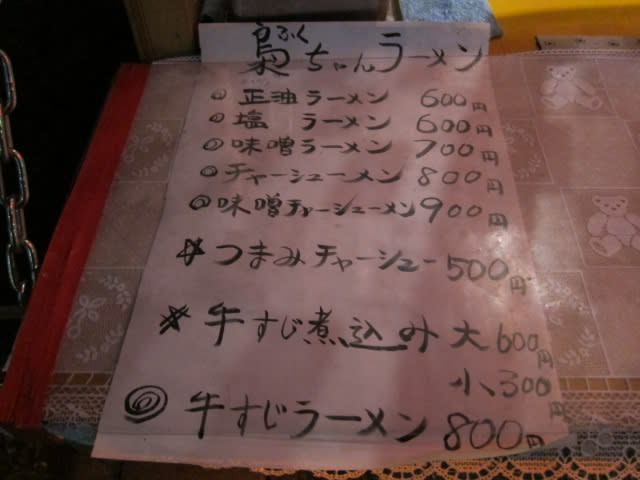 ふく
梟ちゃんラーメン
◎ 正油ラーメン 600円
◎ 塩 ラーメン 600円
◎ 味噌ラーメン 700円
◎ チャーシューメン 800円
◎ 味噌チャーシューメン 900円
☆ つまみチャーシュー 500円
☆ 牛すじ煮込み 大 600円
小 300円
◎ 牛すじラーメン 800円